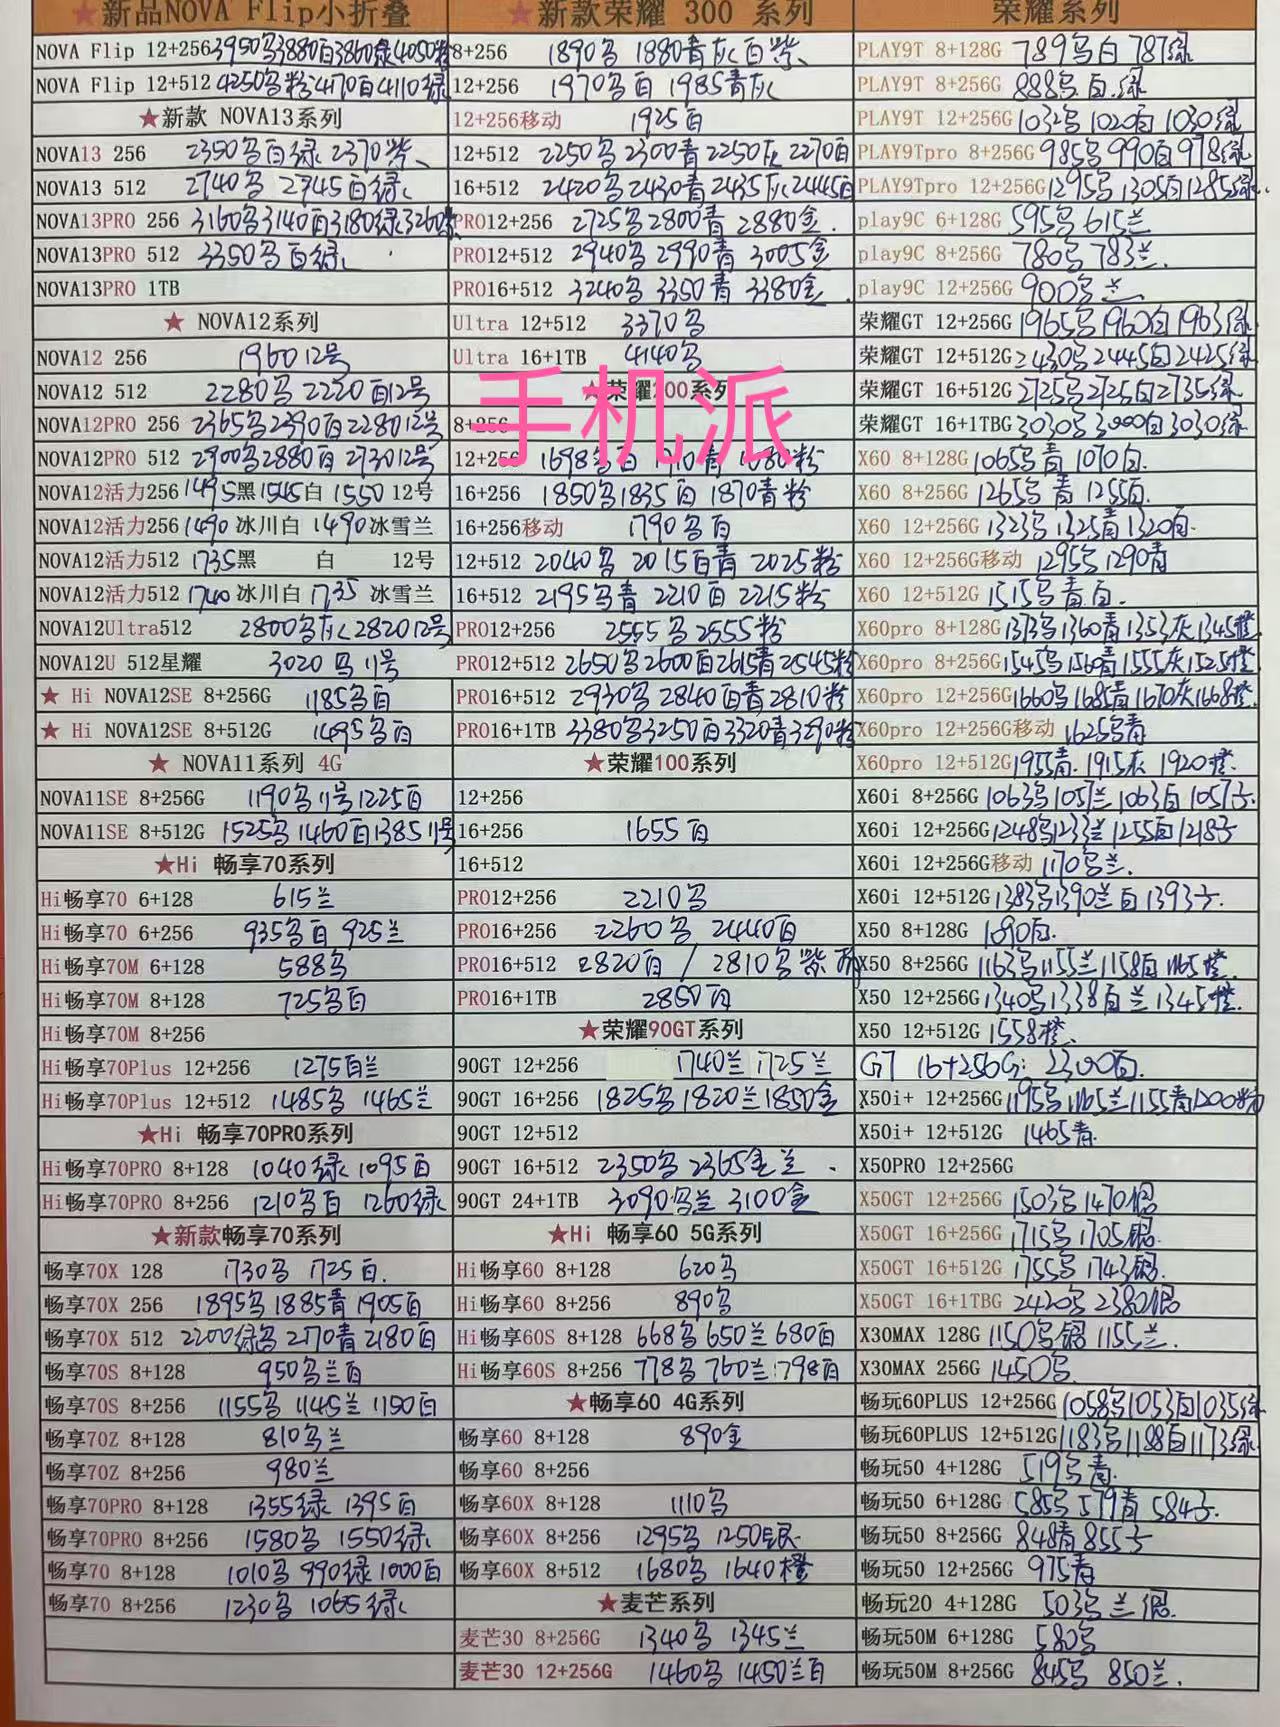 ★新品NOVA Flip小折叠
NOVA Flip 12+256 3950乌3880白3860绿4050粉
NOVA Flip 12+512 4250乌粉4170白4110绿
★新款 NOVA13系列
NOVA13 256 2350乌白绿 2370紫
NOVA13 512 2740乌 2745白绿
NOVA13PRO 256 3160乌3140白3180绿3260紫
NOVA13PRO 512 3350乌白绿
NOVA13PRO 1TB
★ NOVA12系列
NOVA12 256 1960 12号
NOVA12 512 2280乌 2220白12号
NOVA12PRO 256 2365乌2390白2280 12号
NOVA12PRO 512 2900乌2880白2730 12号
NOVA12活力256 1495黑1545白 1550 12号
NOVA12活力256 1490 冰川白 1490冰雪兰
NOVA12活力512 1735黑 白 12号
NOVA12活力512 1740 冰川白 1735 冰雪兰
NOVA12Ultra512 2800乌灰2820 12号
NOVA12U 512星耀 3020 乌 11号
★ Hi NOVA12SE 8+256G 1185乌白
★ Hi NOVA12SE 8+512G 1495乌白
★ NOVA11系列 4G
NOVA11SE 8+256G 1190乌11号1225白
NOVA11SE 8+512G 1525乌1460白1385 11号
★Hi 畅享70系列
Hi畅享70 6+128 615兰
Hi畅享70 6+256 935乌白 925兰
Hi畅享70M 6+128 588乌
Hi畅享70M 8+128 725乌白
Hi畅享70M 8+256
Hi畅享70Plus 12+256 1275白兰
Hi畅享70Plus 12+512 1485乌 1465兰
★Hi 畅享70PRO系列
Hi畅享70PRO 8+128 1040绿 1095白
Hi畅享70PRO 8+256 1210乌白 1260绿
★新款畅享70系列
畅享70X 128 1730乌 1725白
畅享70X 256 1895乌1885青1905白
畅享70X 512 2200绿乌2170青2180白
畅享70S 8+128 950乌兰白
畅享70S 8+256 1155乌1145兰1150白
畅享70Z 8+128 810乌兰
畅享70Z 8+256 980兰
畅享70PRO 8+128 1355绿 1395白
畅享70PRO 8+256 1580乌 1550绿
畅享70 8+128 1010乌 990绿 1000白
畅享70 8+256 1230乌 1065绿
★新款荣耀 300 系列
8+256 1890乌 1880青灰白紫
12+256 1970乌白 1985青灰
12+256移动 1925白
12+512 2250乌2300青2250灰2270白
16+512 2420乌2430青2435灰2445白
PRO12+256 2725乌2800青 2880金
PRO12+512 2940乌2990青 3005金
PRO16+512 3240乌 3350青 3380金
Ultra 12+512 3370乌
Ultra 16+1TB 4140乌
★荣耀200系列
手机派
8+256
12+256 1698乌白 1710青 1680粉
16+256 1850乌1835白 1870青粉
16+256移动 1790乌白
12+512 2040乌 2015白青 2025粉
16+512 2195乌青 2210白 2215粉
PRO12+256 2555乌 2555粉
PRO12+512 2650乌2600白2615青2545粉
PRO16+512 2930乌 2840白青2810粉
PRO16+1TB 3380乌3250白3320青3290粉
★荣耀100系列
12+256
16+256 1655白
16+512
PRO12+256 2210乌
PRO16+256 2260乌 2440白
PRO16+512 2820白 / 2810乌紫
PRO16+1TB 2850白
★荣耀90GT系列
90GT 12+256 1740兰 1725兰
90GT 16+256 1825乌1820兰1850金
90GT 12+512
90GT 16+512 2350乌 2365金兰
90GT 24+1TB 3090乌兰 3100金
★Hi 畅享60 5G系列
Hi畅享60 8+128 620乌
Hi畅享60 8+256 890乌
Hi畅享60S 8+128 668乌 650兰 680白
Hi畅享60S 8+256 778乌 760兰 798白
★畅享60 4G系列
畅享60 8+128 890金
畅享60 8+256
畅享60X 8+128 1110乌
畅享60X 8+256 1295乌 1250银
畅享60X 8+512 1680乌 1640橙
★麦芒系列
麦芒30 8+256G 1340乌 1345兰
麦芒30 12+256G 1460乌 1450兰白
荣耀系列
PLAY9T 8+128G 789乌白 787绿
PLAY9T 8+256G 888乌白绿
PLAY9T 12+256G 1032乌 1020白 1030绿
PLAY9Tpro 8+256G 985乌 990白 978绿
PLAY9Tpro 12+256G 1295乌1305白1285绿
play9C 6+128G 595乌 615兰
play9C 8+256G 780乌 783兰
play9C 12+256G 900乌兰
荣耀GT 12+256G 1965乌1960白1963绿
荣耀GT 12+512G 2430乌2445白2425绿
荣耀GT 16+512G 2725乌2725白2735绿
荣耀GT 16+1TBG 3030乌3000白3030绿
X60 8+128G 1065乌青 1070白
X60 8+256G 1265乌青 1255白
X60 12+256G 1323乌1325青1320白
X60 12+256G移动 1295乌1290青
X60 12+512G 1515乌青白
X60pro 8+128G 1373乌1360青1353灰1345橙
X60pro 8+256G 1545乌1560青1555灰1525橙
X60pro 12+256G 1660乌1685青1670灰1668橙
X60pro 12+256G移动 1625乌青
X60pro 12+512G 1955青 1915灰 1920橙
X60i 8+256G 1063乌1057兰1063白1057子
X60i 12+256G 1248乌1233兰1255白1218子
X60i 12+256G移动 1170乌兰
X60i 12+512G 1383乌1390兰白1393子
X50 8+128G 1090白
X50 8+256G 1163乌1155兰1158白1165橙
X50 12+256G 1340乌1338白兰1345橙
X50 12+512G 1558橙
GT 16+256G: 2300白
X50i+ 12+256G 1195乌1165兰1155青1200粉
X50i+ 12+512G 1465青
X50PRO 12+256G
X50GT 12+256G 1503乌1470银
X50GT 16+256G 1715乌 1705银
X50GT 16+512G 1755乌 1743银
X50GT 16+1TBG 2420乌 2380银
X30MAX 128G 1150乌银 1155兰
X30MAX 256G 1450乌
畅玩60PLUS 12+256G 1058乌1053白1035绿
畅玩60PLUS 12+512G 1183乌1188白1173绿
畅玩50 4+128G 519乌青
畅玩50 6+128G 585乌 579青 584子
畅玩50 8+256G 848青 855子
畅玩50 12+256G 975青
畅玩20 4+128G 503乌兰银
畅玩50M 6+128G 580乌
畅玩50M 8+256G 845乌 850兰